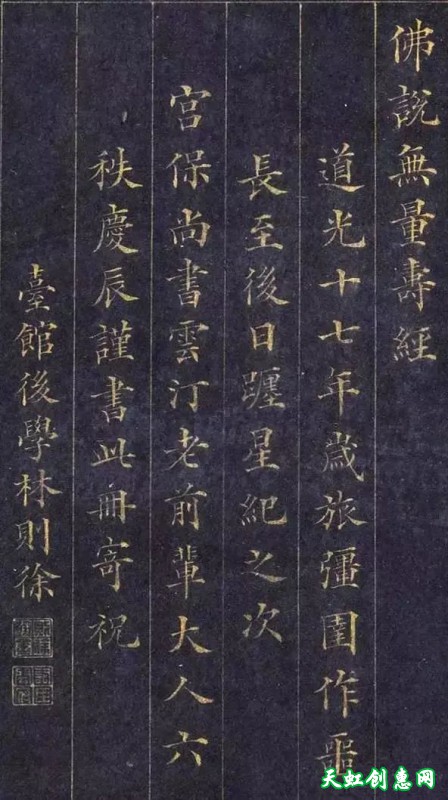 佛說無量壽經
道光十七年歲旅彊圉作噩
長至後日躔星紀之次
宮保尚書雲汀老前輩大人六
秩慶辰謹書此冊寄祝
臺館後學林則徐
天虹创惠网